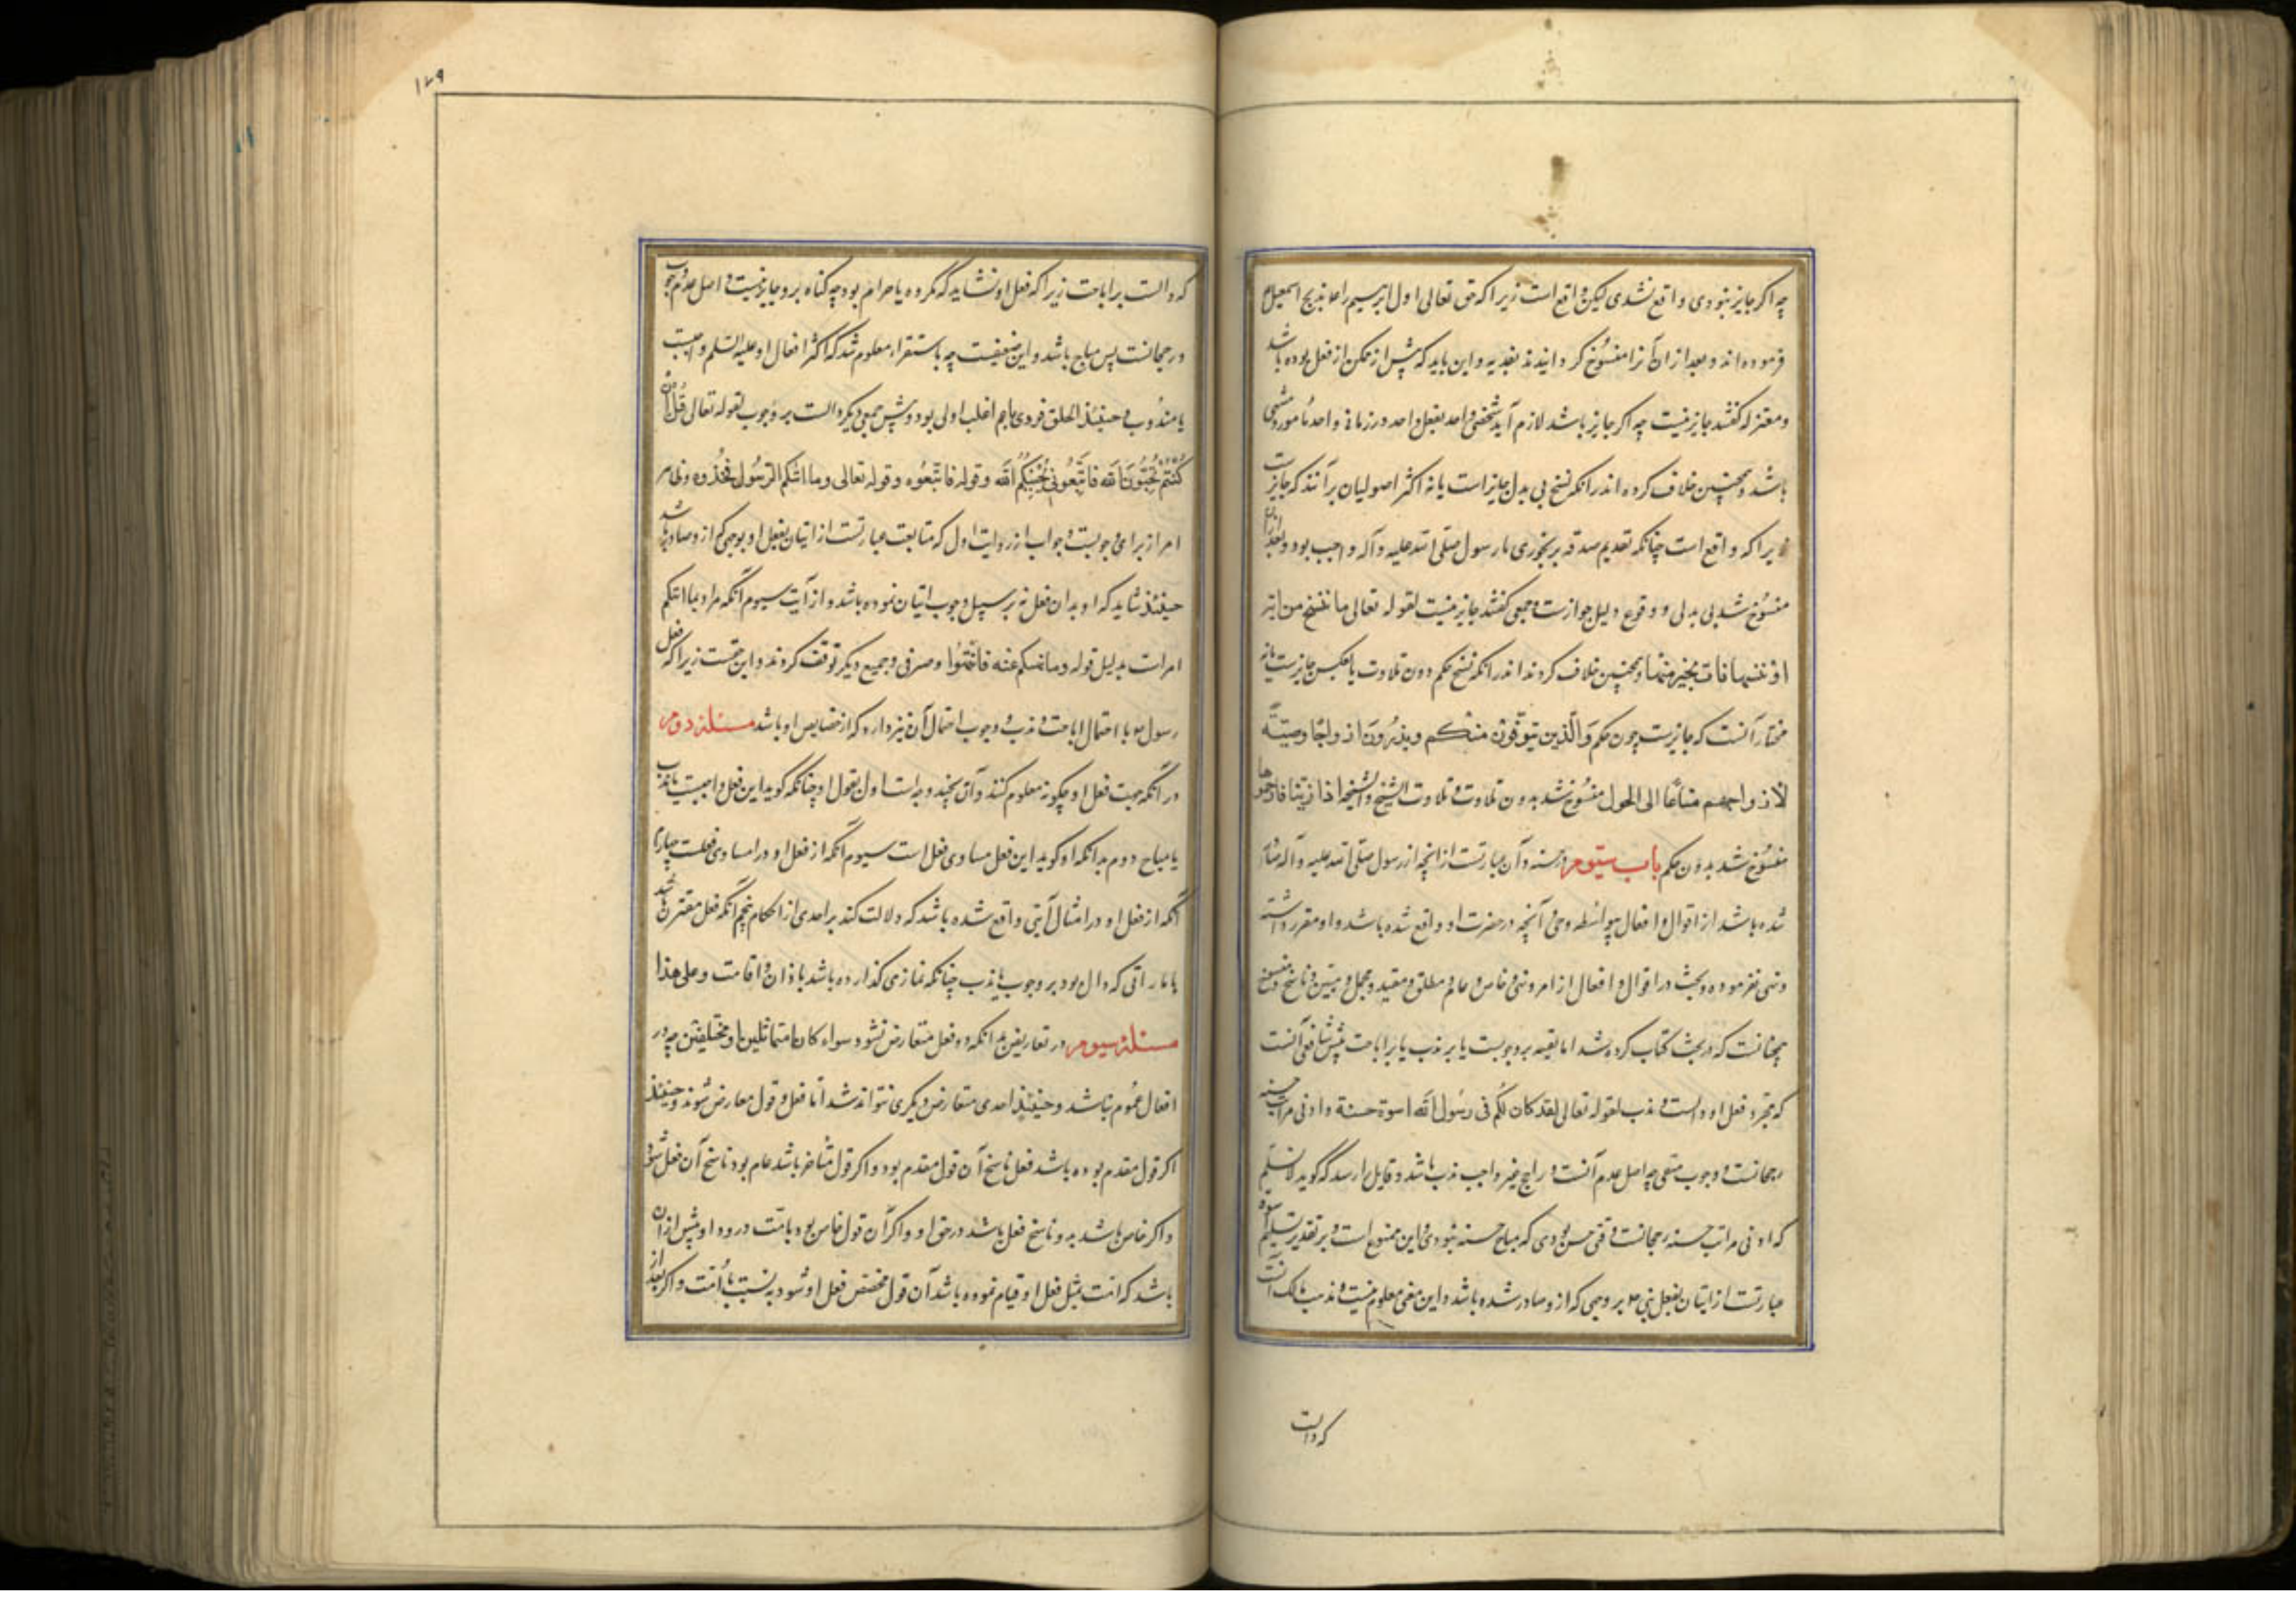 چه اکر جایز نبودی واقع نشدی لیکن واقع است زیرا که حق تعالی اول ابرهیم را ع بذبح اسمعیل ع
فرموده اند و بعد از ان آنرا منسوخ کردانیدند بفدیه و این باید که پیش از تمکن از فعل بوده باشد
و معتزله کفتند جایز نیست چه اکر جایز باشد لازم آید شخصی واحد بفعل واحد در زمان واحد مامور و منهی
باشد و همچنین خلاف کرده اند در آنکه نسخ بی بدل جایز است یا نه اکثر اصولیان بر آنند که جایزست
زیرا که واقع است چنانکه تقدیم صدقه بر نجوری با رسول صلی الله علیه و آله واجب بود و بعد از ان
منسوخ شد بی بدلی و وقوع دلیل جوازست و جمعی کفتند جایز نیست لقوله تعالی ما ننسخ من آیة
او ننسها نات بخیر منها و همچنین خلاف کردند اندر آنکه نسخ حکم دون تلاوت یا عکس جایزست یا نه
مختار آنست که جایزست چون حکم وَالَّذین یتوفّون منکم ویذرُونَ ازواجًا وصیّة
لازواجهم متاعًا الی الحول منسوخ شد بدون تلاوت و تلاوت الشیخ والشیخة اذا زنیا فارجموهما
منسوخ شد بدون حکم باب سیّوم در سنه و آن عبارتست از آنچه از رسول صلی الله علیه و آله صادر
شده باشد از اقوال و افعال بواسطه وحی و آنچه در حضرت او واقع شده باشد و او مقرر داشته
و نهی نفرموده و بحث در اقوال و افعال از امر و نهی و خاص و عام و مطلق و مقید و مجمل و مبین و ناسخ و منسوخ
همچنانست که در بحث کتاب کرده شد اما بقیه بر وجوبست یا بر ندب یا بر اباحت پیش شافعی آنست
که مجرد فعل او دالست بر ندب لقوله تعالی لقد کان لکم فی رسُول الله اسوة حسنة و ادنی مراتب حسنه
رجحانست و وجوب منفی چه اصل عدم آنست و راجح غیر واجب ندب باشد و قایل را رسد که کوید لا نسلم
که ادنی مراتب حسنه رجحانست وقتی حسن بودی که مباح حسنه نبودی و این ممنوع است و بر تقدیر تسلیم اسوه
عبارتست از اتیان بفعل نبی ع بر وجهی که از و صادر شده باشد و این معنی معلوم نیست و مذهب مالک آنست
که دالست
۱۲۹
که دالست بر اباحت زیرا که فعل او نشاید که مکروه یا حرام بود چه کناه برو جایز نیست و اصل عدم وجوب
و رجحانست پس مباح باشد و این ضعیفست چه باستقراء معلوم شد که اکثر افعال او علیه السلم واجبست
یا مندوب و حینئذ الحاق فردی باعم اغلب اولی بود و پیش جمعی دیکر دالست بر وجوب لقوله تعالی قُل ان
کُنتم تُحبّونَ الله فاتّبعُونی یُحببکُم الله و قوله فاتّبعُوه و قوله تعالی وما اتٰیکم الرّسُول فخُذوه و ظاهر
امر از برای وجوبست و جواب از روایت اول که متابعت عبارتست از اتیان بفعل او بوجهی که از و صادر باشد
حینئذ شاید که او بدان فعل نه بر سبیل وجوب اتیان نموده باشد و از آیت سیوم آنکه مراد بما اتیکم
امرست بدلیل قوله وما نهیکم عنه فانتهُوا و صرفی و جمیع دیکر توقف کردند و این حقست زیرا که فعل
رسول ع با احتمال اباحت و ندب و وجوب احتمال آن نیز دارد که از خصایص او باشد مسئلهٔ دوم
در آنکه جهت فعل او چکونه معلوم کنند و آن بچند وجه است اول بقول او چنانکه کوید این فعل واجبست یا ندب
یا مباح دوم بدانکه او کوید این فعل مساوی فعل است سیوم آنکه از فعل او در امساوی فعلست چهارم
آنکه از فعل او در امتثال آیتی واقع شده باشد که دلالت کند بر احدی از احکام پنجم آنکه فعل مقترن باشد
باماراتی که دال بود بر وجوب یا ندب چنانکه نمازی کذارده باشد باذان و اقامت و علی هذا
مسئلهٔ سیوم در تعاریض بدانکه دو فعل متعارض نشود سواء کانا متماثلین او مختلفین چه در
افعال عموم نباشد و حینئذ احدی متعارض دیکری نتواند شد اما فعل و قول معارض شوند و حینئذ
اکر قول مقدم بوده باشد فعل ناسخ آن قول مقدم بود و اکر قول متاخر باشد عام بود ناسخ آن فعل شود
و اکر خاص باشد بدو ناسخ فعل باشد در حق او و اکر آن قول خاص بود بامت و ورود او پیش از ان
باشد که امت بمثل فعل او قیام نموده باشد آن قول مخصص فعل او شود به نسبت با امت و اکر بعد از